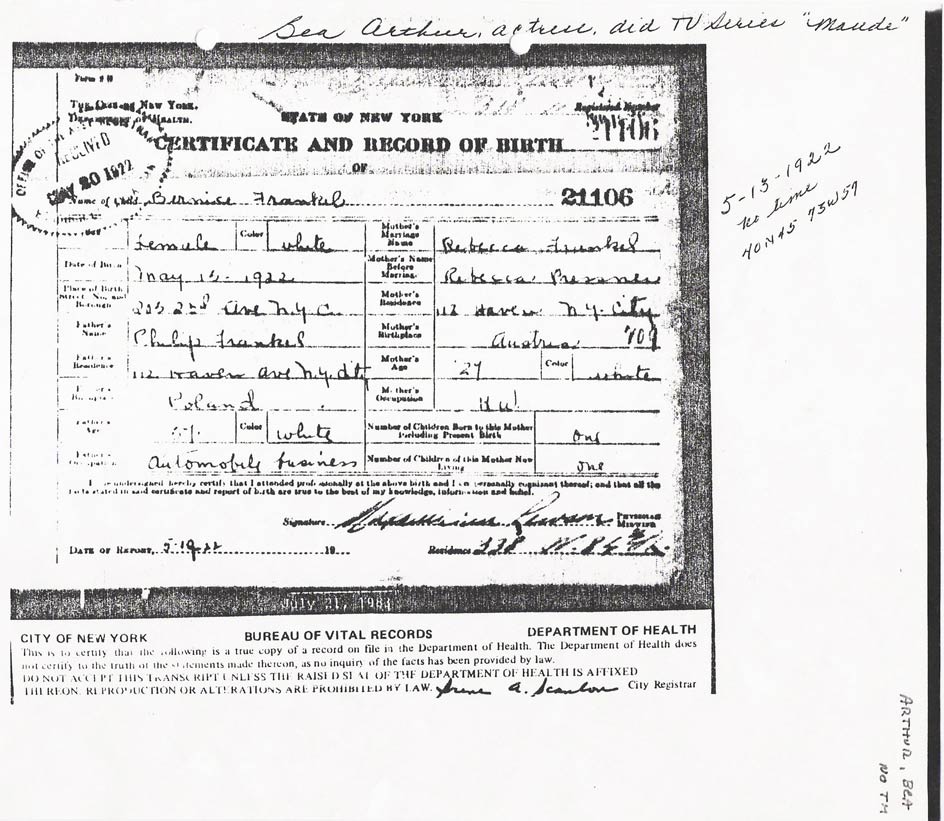 Bea Arthur, actress, did TV Series "Maude"
Form
The City of New York.
Department of Health.
STATE OF NEW YORK
Registered Number
21106
CERTIFICATE AND RECORD OF BIRTH
OF
OFFICE OF
RECEIVED
MAY 20 1922
Name of Child Bernice Frankel
21106
Female Color white Mother's Marriage Name Rebecca Frankel
Date of Birth May 13 - 1922 Mother's Name Before Marriage Rebecca
Place of Birth Street, No. and Borough 2nd Ave N.Y.C. Mother's Residence 112 Haven N.Y. City
Father's Name Philip Frankel Mother's Birthplace Austria 709
Father's Residence 112 Haven Ave N.Y. City Mother's Age 27 Color white
Father's Poland Mother's Occupation H W
Father's Age Color white Number of Children Born to this Mother Including Present Birth one
Father's Occupation Automobile business Number of Children of this Mother Now Living one
I, the undersigned hereby certify that I attended professionally at the above birth and I am personally cognizant thereof; and that all the
facts stated in said certificate and report of birth are true to the best of my knowledge, information and belief.
Signature PHYSICIAN
MIDWIFE
DATE OF REPORT, 5-19-22 19 Residence
July 21, 1983
CITY OF NEW YORK BUREAU OF VITAL RECORDS DEPARTMENT OF HEALTH
This is to certify that the following is a true copy of a record on file in the Department of Health. The Department of Health does
not certify to the truth of the statements made thereon, as no inquiry of the facts has been provided by law.
DO NOT ACCEPT THIS TRANSCRIPT UNLESS THE RAISED SEAL OF THE DEPARTMENT OF HEALTH IS AFFIXED
THEREON. REPRODUCTION OR ALTERATIONS ARE PROHIBITED BY LAW. Irene A. Scanlon City Registrar
5-13-1922
no time
40N45 73W57
ARTHUR, BEA
NO TM